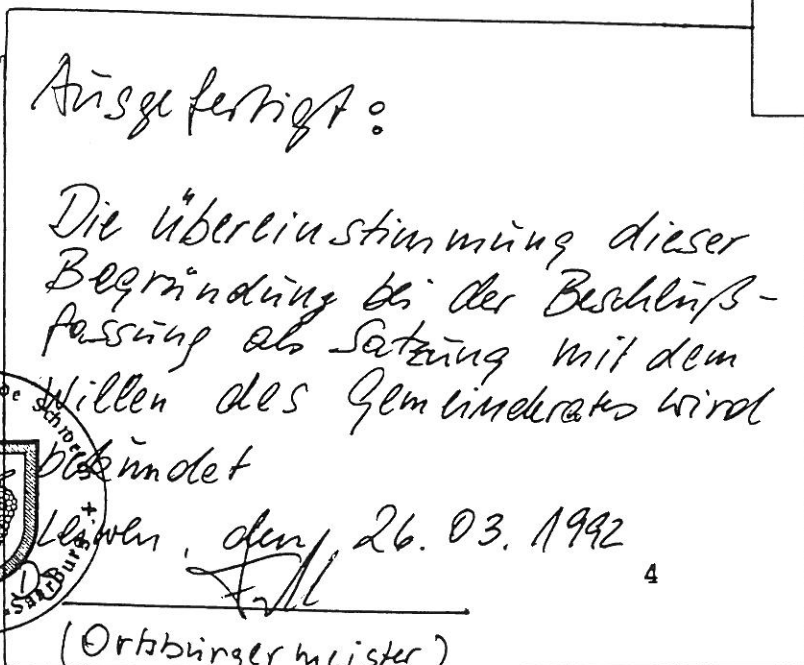 Ausgefertigt:
Die Übereinstimmung dieser
Begründung bei der Beschluß-
fassung als Satzung mit dem
Willen des Gemeinderates wird
bekundet
Leiwen, den 26.03.1992
4
(Ortsbürgermeister)
Schweich
Saarburg